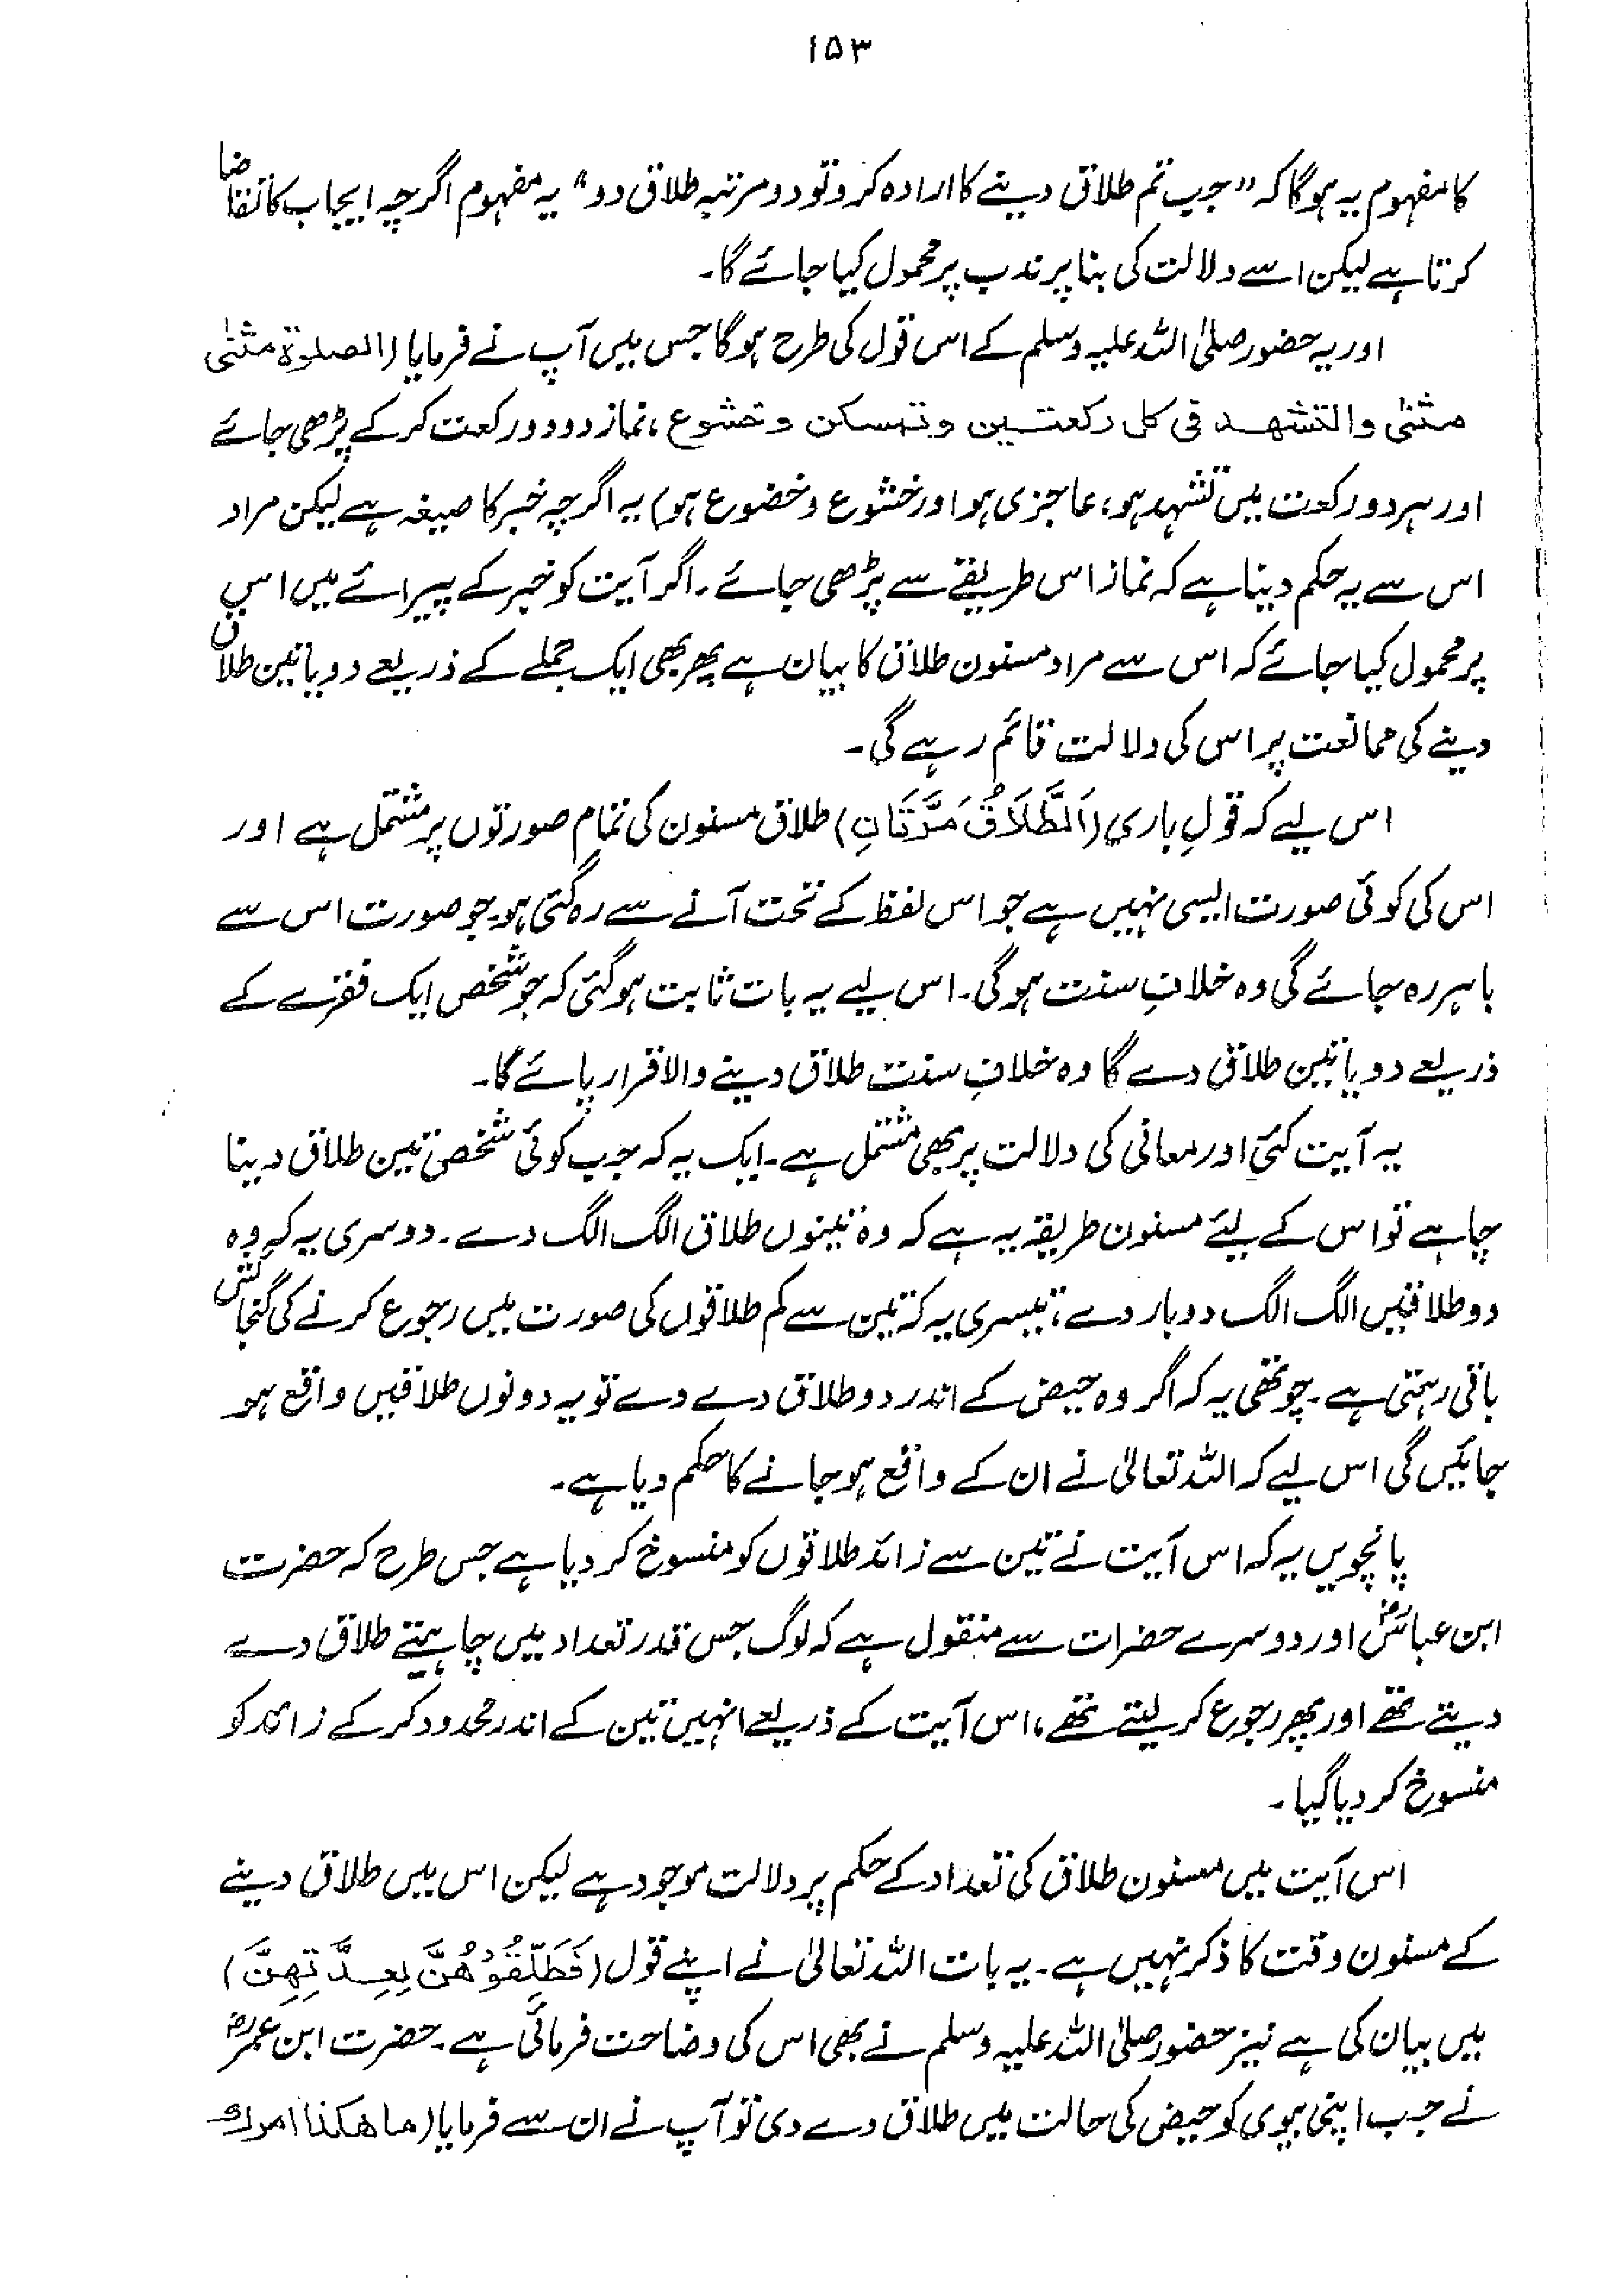 ۱۵۳
کا مفہوم یہ ہوگا کہ "جب تم طلاق دینے کا ارادہ کرو تو دو مرتبہ طلاق دو" یہ مفہوم اگرچہ ایجاب کا تقاضا
کرتا ہے لیکن اسے دلالت کی بنا پر ندب پر محمول کیا جائے گا۔
اور یہ حضور صلی اللہ علیہ وسلم کے اس قول کی طرح ہوگا جس میں آپ نے فرمایا (الصلوٰۃ مثنیٰ
مثنیٰ والتشھد فی کل رکعتین وتمسکن وخشوع، نماز دو دو رکعت کر کے پڑھی جائے
اور ہر دو رکعت میں تشہد ہو، عاجزی ہو اور خشوع و خضوع ہو) یہ اگرچہ خبر کا صیغہ ہے لیکن مراد
اس سے یہ حکم دینا ہے کہ نماز اس طریقے سے پڑھی جائے۔ اگر آیت کو خبر کے پیرائے میں اس
پر محمول کیا جائے کہ اس سے مراد مسنون طلاق کا بیان ہے پھر بھی ایک جملے کے ذریعے دو یا تین طلاق
دینے کی ممانعت پر اس کی دلالت قائم رہے گی۔
اس لیے کہ قولِ باری (اَلطَّلَاقُ مَرَّتَانِ) طلاق مسنون کی تمام صورتوں پر مشتمل ہے اور
اس کی کوئی صورت ایسی نہیں ہے جو اس لفظ کے تحت آنے سے رہ گئی ہو۔ جو صورت اس سے
باہر رہ جائے گی وہ خلافِ سنت ہوگی۔ اس لیے یہ بات ثابت ہوگئی کہ جو شخص ایک فقرے کے
ذریعے دو یا تین طلاق دے گا وہ خلافِ سنت طلاق دینے والا قرار پائے گا۔
یہ آیت کئی اور معانی کی دلالت پر بھی مشتمل ہے۔ ایک یہ کہ جب کوئی شخص تین طلاق دینا
چاہے تو اس کے لئے مسنون طریقہ یہ ہے کہ وہ تینوں طلاق الگ الگ دے۔ دوسری یہ کہ وہ
دو طلاقیں الگ الگ دو بار دے، تیسری یہ کہ تین سے کم طلاقوں کی صورت میں رجوع کرنے کی گنجائش
باقی رہتی ہے۔ چوتھی یہ کہ اگر وہ حیض کے اندر دو طلاق دے دے تو یہ دونوں طلاقیں واقع ہو
جائیں گی اس لیے کہ اللہ تعالیٰ نے ان کے واقع ہو جانے کا حکم دیا ہے۔
پانچویں یہ کہ اس آیت نے تین سے زائد طلاقوں کو منسوخ کر دیا ہے جس طرح کہ حضرت
ابن عباسؓ اور دوسرے حضرات سے منقول ہے کہ لوگ جس قدر تعداد میں چاہتے طلاق دے
دیتے تھے اور پھر رجوع کر لیتے تھے، اس آیت کے ذریعے انہیں تین کے اندر محدود کر کے زائد کو
منسوخ کر دیا گیا۔
اس آیت میں مسنون طلاق کی تعداد کے حکم پر دلالت موجود ہے لیکن اس میں طلاق دینے
کے مسنون وقت کا ذکر نہیں ہے۔ یہ بات اللہ تعالیٰ نے اپنے قول (فَطَلِّقُوْھُنَّ بِعِدَّتِھِنَّ)
میں بیان کی ہے نیز حضور صلی اللہ علیہ وسلم نے بھی اس کی وضاحت فرمائی ہے۔ حضرت ابن عمرؓ
نے جب اپنی بیوی کو حیض کی حالت میں طلاق دے دی تو آپ نے ان سے فرمایا (ما ھکذا امرك